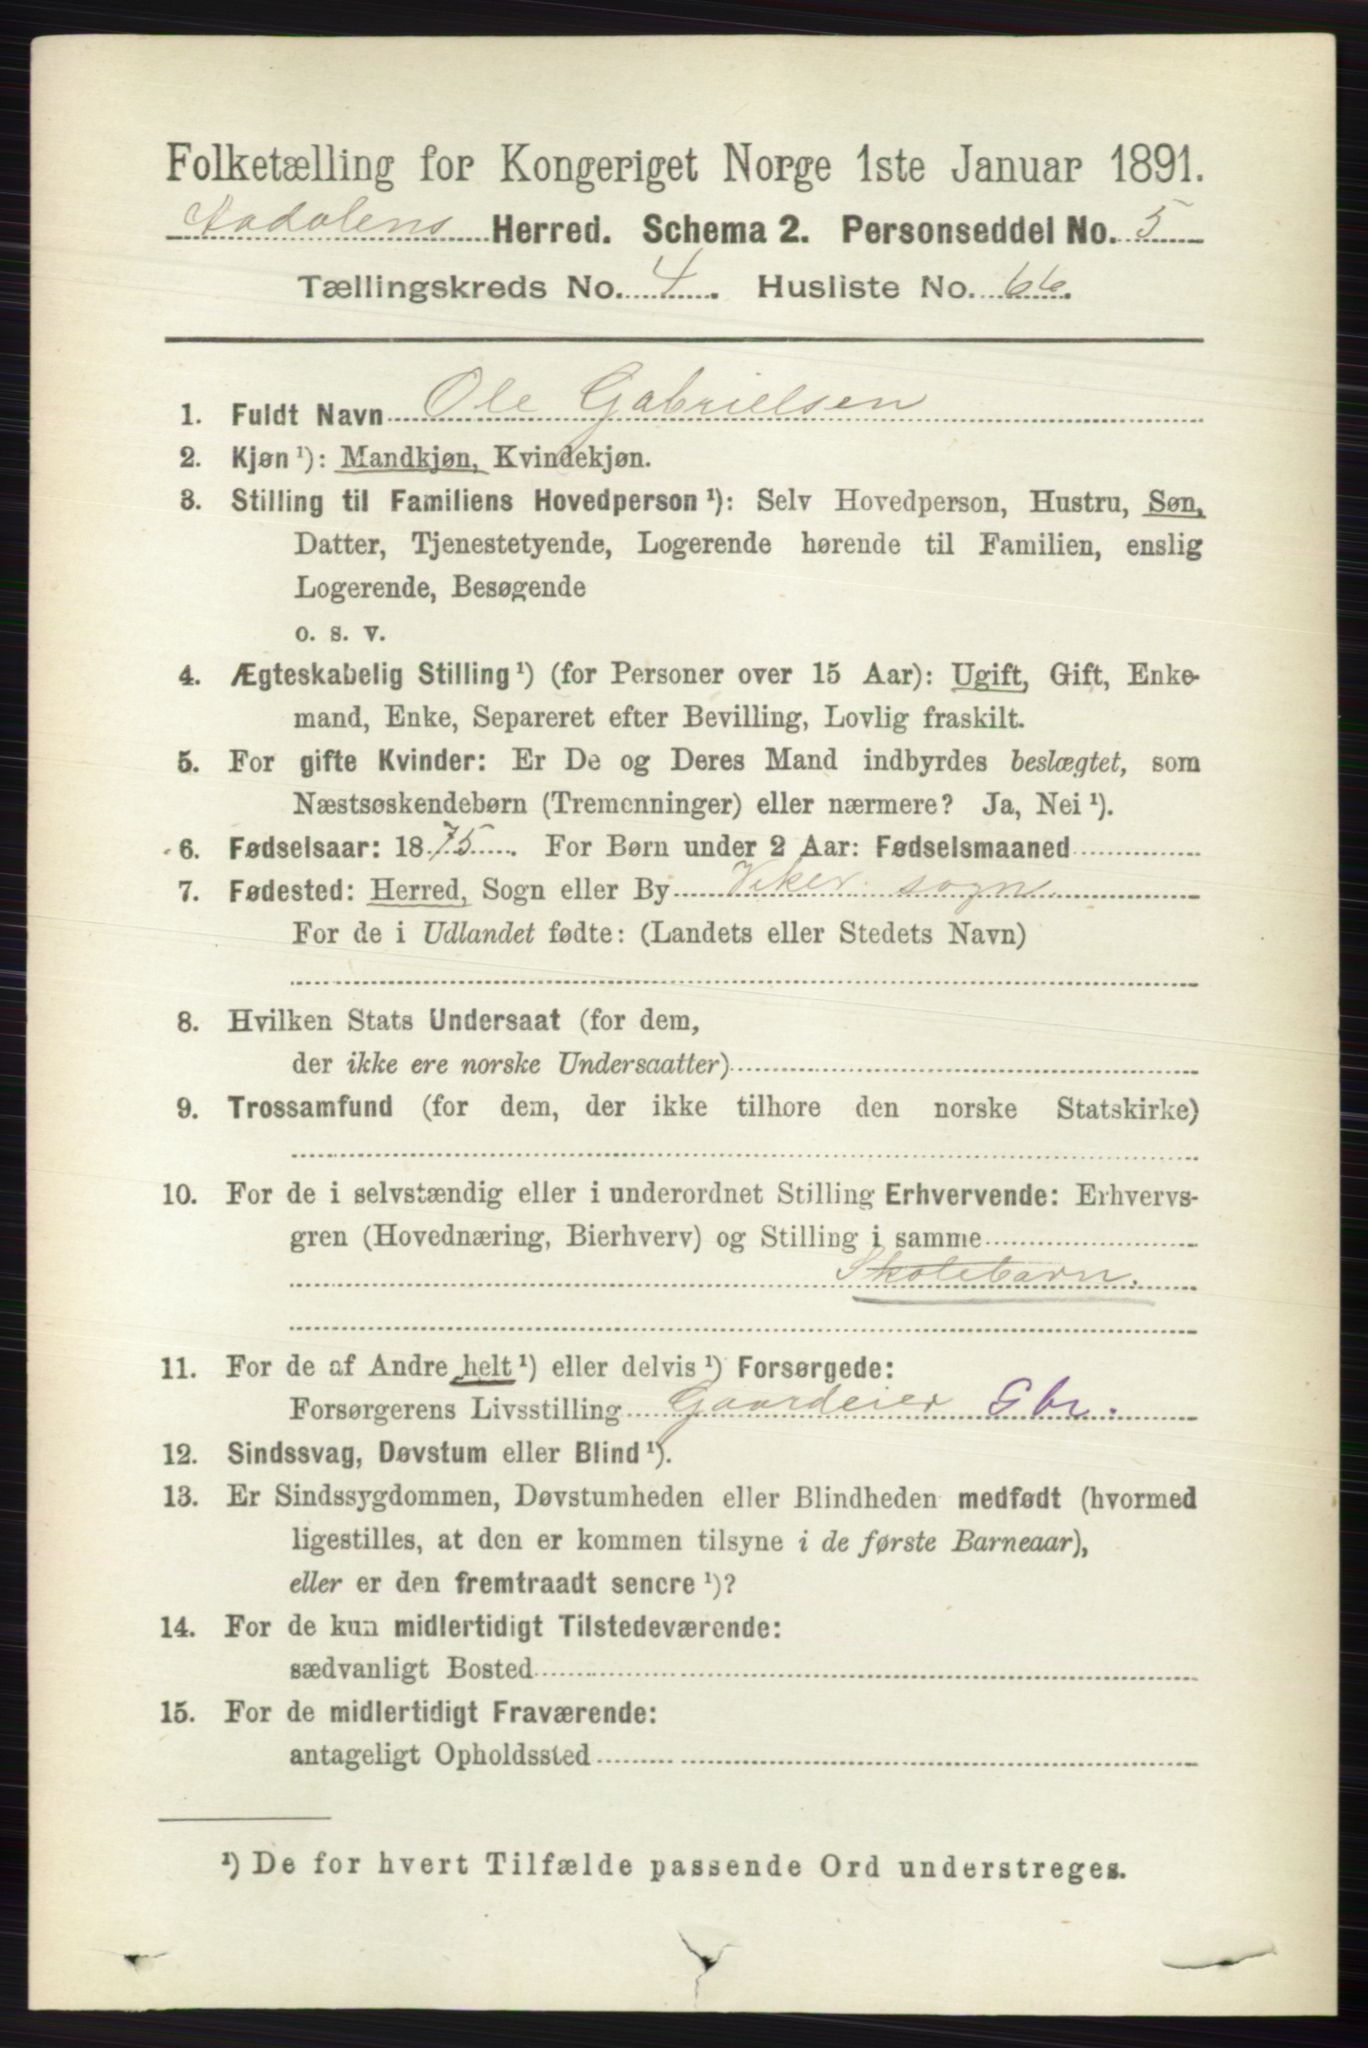 Folketælling for Kongeriget Norge 1ste Januar 1891.
Aadalens Herred. Schema 2. Personseddel No. 5
Tællingskreds No. 4. Husliste No. 66.
1. Fuldt Navn Ole Gabrielsen
2. Kjøn ¹): Mandkjøn, Kvindekjøn.
3. Stilling til Familiens Hovedperson ¹): Selv Hovedperson, Hustru, Søn,
Datter, Tjenestetyende, Logerende hørende til Familien, enslig
Logerende, Besøgende
o. s. v.
4. Ægteskabelig Stilling ¹) (for Personer over 15 Aar): Ugift, Gift, Enke-
mand, Enke, Separeret efter Bevilling, Lovlig fraskilt.
5. For gifte Kvinder: Er De og Deres Mand indbyrdes beslægtet, som
Næstsøskendebørn (Tremenninger) eller nærmere? Ja, Nei ¹).
6. Fødselsaar: 1875. For Børn under 2 Aar: Fødselsmaaned
7. Fødested: Herred, Sogn eller By Viker sogn.
For de i Udlandet fødte: (Landets eller Stedets Navn)
8. Hvilken Stats Undersaat (for dem,
der ikke ere norske Undersaatter)
9. Trossamfund (for dem, der ikke tilhore den norske Statskirke)
10. For de i selvstændig eller i underordnet Stilling Erhvervende: Erhvervs-
gren (Hovednæring, Bierhverv) og Stilling i samme
Skolebarn.
11. For de af Andre helt ¹) eller delvis ¹) Forsørgede:
Forsørgerens Livsstilling Gaardeier Gbr.
12. Sindssvag, Døvstum eller Blind ¹).
13. Er Sindssygdommen, Døvstumheden eller Blindheden medfødt (hvormed
ligestilles, at den er kommen tilsyne i de første Barneaar),
eller er den fremtraadt senere ¹)?
14. For de kun midlertidigt Tilstedeværende:
sædvanligt Bosted
15. For de midlertidigt Fraværende:
antageligt Opholdssted
¹) De for hvert Tilfælde passende Ord understreges.